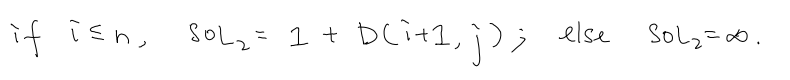 if i ≤ n, SOL₂ = 1 + D(i+1, j); else SOL₂ = ∞.